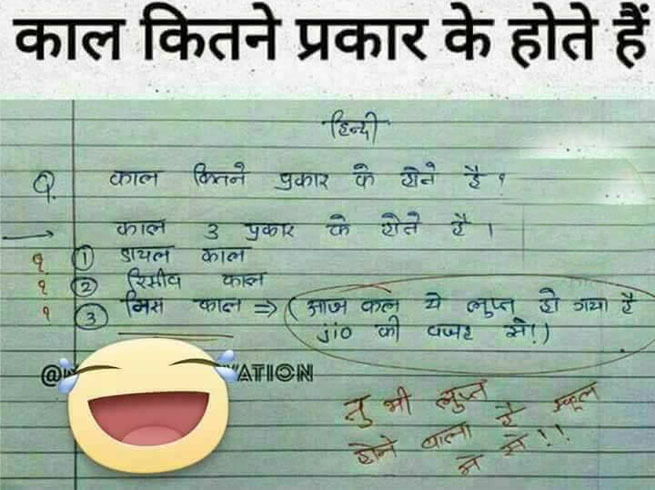 काल कितने प्रकार के होते हैं
हिन्दी
Q. काल कितने प्रकार के होते है ?
→ काल 3 प्रकार के होते है ।
१ ① डायल काल
१ ② रिसीव काल
१ ③ मिस काल ⇒ (आज कल ये लुप्त हो गया है
jio की वजह से!)
VATION
तु भी लुप्त
होने वाला है स्कूल
में से !!